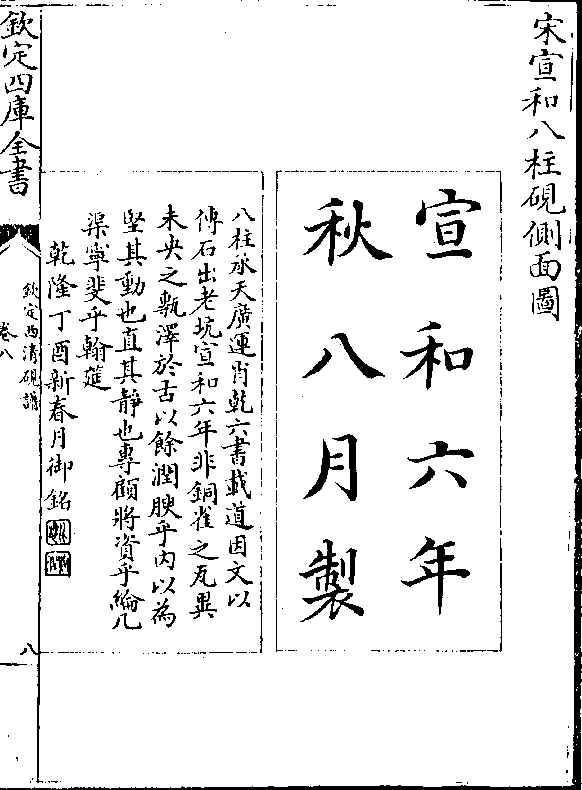 宋宣和八柱硯側面圖
宣和六年
秋八月製
八柱承天廣運肖乾六書載道因文以
傳石出老坑宣和六年非銅雀之瓦異
未央之甎澤於古以餘潤腴乎内以為
堅其動也直其靜也專顧將資乎綸几
渠寧斐乎翰筵
乾隆丁酉新春月御銘
欽定四庫全書
欽定西清硯譜
卷八
八